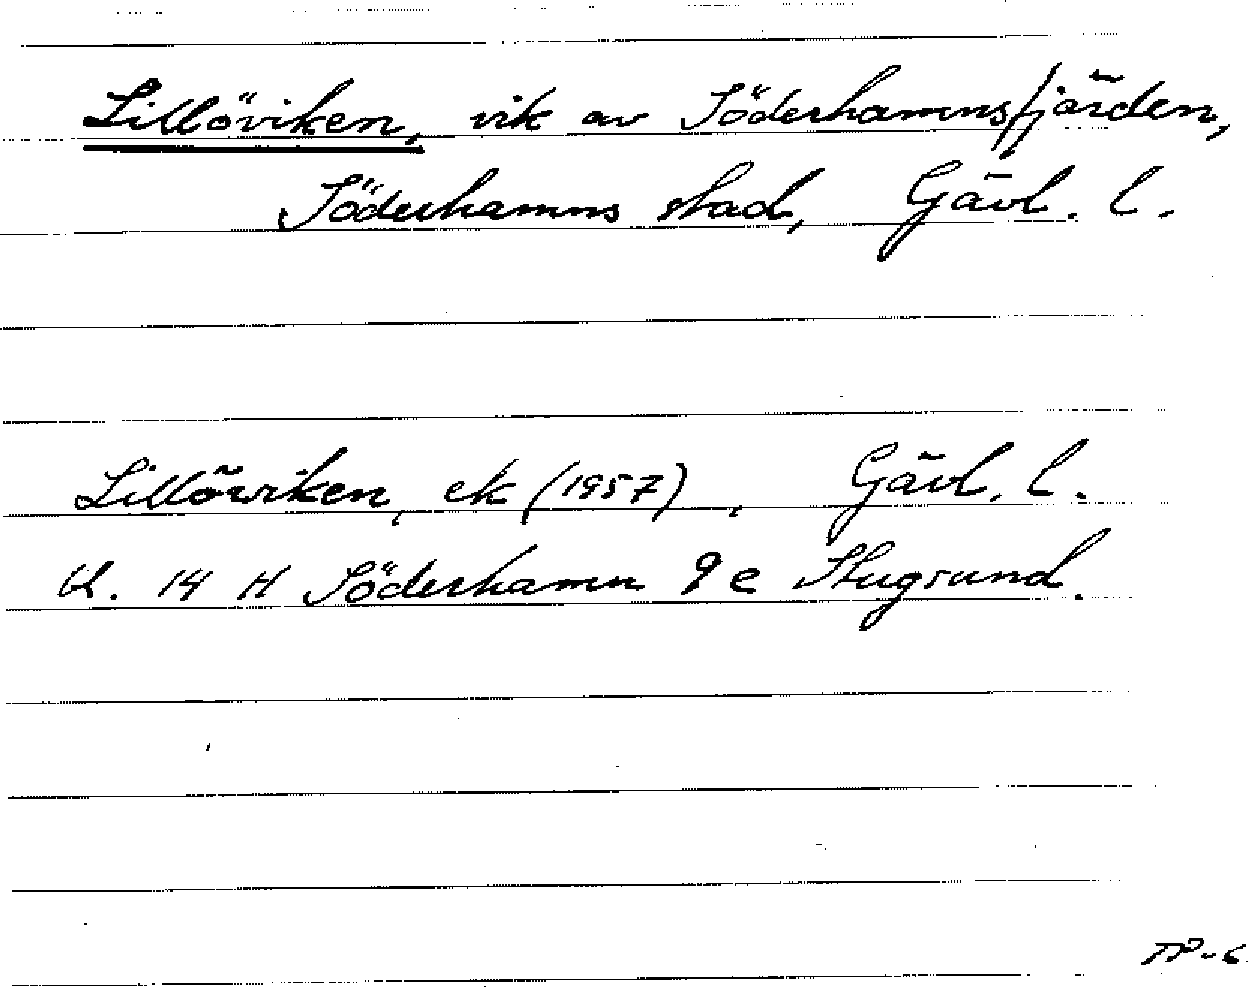 Lillöviken, vik av Söderhamnsfjärden,
Söderhamns stad, Gävl. l.
Lillöviken, ek (1957), Gävl. l.
14 H Söderhamn 9 e Stugsund.